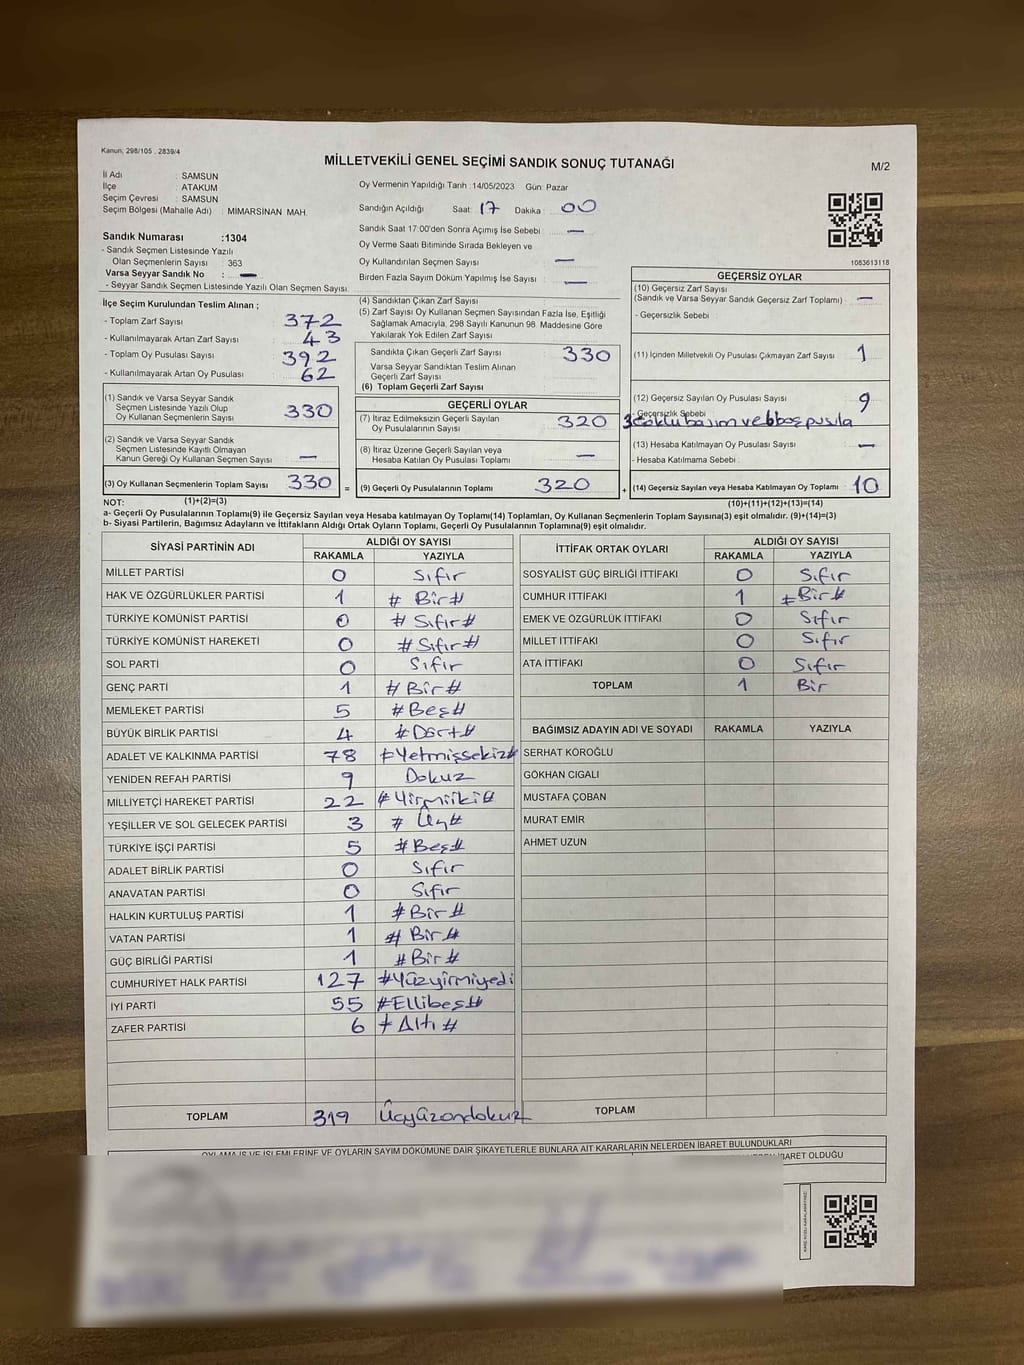 Kanun: 298/105 , 2839/4
MİLLETVEKİLİ GENEL SEÇİMİ SANDIK SONUÇ TUTANAĞI
M/2
İl Adı : SAMSUN
İlçe : ATAKUM
Seçim Çevresi : SAMSUN
Seçim Bölgesi (Mahalle Adı) : MİMARSİNAN MAH.
Oy Vermenin Yapıldığı Tarih :14/05/2023 Gün: Pazar
Sandığın Açıldığı Saat: 17 Dakika : 00
Sandık Saat 17:00'den Sonra Açımış İse Sebebi : —
Oy Verme Saati Bitiminde Sırada Bekleyen ve
Oy Kullandırılan Seçmen Sayısı : —
Birden Fazla Sayım Döküm Yapılmış İse Sayısı : —
1083613118
Sandık Numarası :1304
- Sandık Seçmen Listesinde Yazılı
Olan Seçmenlerin Sayısı : 363
Varsa Seyyar Sandık No : —
- Seyyar Sandık Seçmen Listesinde Yazılı Olan Seçmen Sayısı:
İlçe Seçim Kurulundan Teslim Alınan ;
- Toplam Zarf Sayısı : 372
- Kullanılmayarak Artan Zarf Sayısı : 43
- Toplam Oy Pusulası Sayısı : 392
- Kullanılmayarak Artan Oy Pusulası : 62
(1) Sandık ve Varsa Seyyar Sandık
Seçmen Listesinde Yazılı Olup
Oy Kullanan Seçmenlerin Sayısı : 330
(2) Sandık ve Varsa Seyyar Sandık
Seçmen Listesinde Kayıtlı Olmayan
Kanun Gereği Oy Kullanan Seçmen Sayısı : —
(3) Oy Kullanan Seçmenlerin Toplam Sayısı : 330
(4) Sandıktan Çıkan Zarf Sayısı :
(5) Zarf Sayısı Oy Kullanan Seçmen Sayısından Fazla İse, Eşitliği
Sağlamak Amacıyla, 298 Sayılı Kanunun 98 Maddesine Göre
Yakılarak Yok Edilen Zarf Sayısı :
Sandıkta Çıkan Geçerli Zarf Sayısı : 330
Varsa Seyyar Sandıktan Teslim Alınan
Geçerli Zarf Sayısı :
(6) Toplam Geçerli Zarf Sayısı :
GEÇERLİ OYLAR
(7) İtiraz Edilmeksizin Geçerli Sayılan
Oy Pusulalarının Sayısı : 320
(8) İtiraz Üzerine Geçerli Sayılan veya
Hesaba Katılan Oy Pusulası Toplamı : —
= (9) Geçerli Oy Pusulalarının Toplamı : 320
GEÇERSİZ OYLAR
(10) Geçersiz Zarf Sayısı
(Sandık ve Varsa Seyyar Sandık Geçersiz Zarf Toplamı) : —
- Geçersizlik Sebebi :
(11) İçinden Milletvekili Oy Pusulası Çıkmayan Zarf Sayısı : 1
(12) Geçersiz Sayılan Oy Pusulası Sayısı : 9
- Geçersizlik Sebebi
ve boş pusula
(13) Hesaba Katılmayan Oy Pusulası Sayısı : —
- Hesaba Katılmama Sebebi :
+ (14) Geçersiz Sayılan veya Hesaba Katılmayan Oy Toplamı : 10
NOT: (1)+(2)=(3)
(10)+(11)+(12)+(13)=(14)
a- Geçerli Oy Pusulalarının Toplamı(9) ile Geçersiz Sayılan veya Hesaba katılmayan Oy Toplamı(14) Toplamları, Oy Kullanan Seçmenlerin Toplam Sayısına(3) eşit olmalıdır. (9)+(14)=(3)
b- Siyasi Partilerin, Bağımsız Adayların ve İttifakların Aldığı Ortak Oyların Toplamı, Geçerli Oy Pusulalarının Toplamına(9) eşit olmalıdır.
SİYASİ PARTİNİN ADI ALDIĞI OY SAYISI
RAKAMLA YAZIYLA
MİLLET PARTİSİ 0 Sıfır
HAK VE ÖZGÜRLÜKLER PARTİSİ 1 # Bir #
TÜRKİYE KOMÜNİST PARTİSİ 0 # Sıfır #
TÜRKİYE KOMÜNİST HAREKETİ 0 # Sıfır #
SOL PARTİ 0 Sıfır
GENÇ PARTİ 1 # Bir #
MEMLEKET PARTİSİ 5 # Beş #
BÜYÜK BİRLİK PARTİSİ 4 # Dört #
ADALET VE KALKINMA PARTİSİ 78 # Yetmişsekiz #
YENİDEN REFAH PARTİSİ 9 Dokuz
MİLLİYETÇİ HAREKET PARTİSİ 22 # Yirmiiki #
YEŞİLLER VE SOL GELECEK PARTİSİ 3 # Üç #
TÜRKİYE İŞÇİ PARTİSİ 5 # Beş #
ADALET BİRLİK PARTİSİ 0 Sıfır
ANAVATAN PARTİSİ 0 Sıfır
HALKIN KURTULUŞ PARTİSİ 1 # Bir #
VATAN PARTİSİ 1 # Bir #
GÜÇ BİRLİĞİ PARTİSİ 1 # Bir #
CUMHURİYET HALK PARTİSİ 127 # Yüzyirmiyedi
İYİ PARTİ 55 # Ellibeş #
ZAFER PARTİSİ 6 # Altı #
TOPLAM 319 Üçyüzondokuz
İTTİFAK ORTAK OYLARI ALDIĞI OY SAYISI
RAKAMLA YAZIYLA
SOSYALİST GÜÇ BİRLİĞİ İTTİFAKI 0 Sıfır
CUMHUR İTTİFAKI 1 # Bir #
EMEK VE ÖZGÜRLÜK İTTİFAKI 0 Sıfır
MİLLET İTTİFAKI 0 Sıfır
ATA İTTİFAKI 0 Sıfır
TOPLAM 1 Bir
BAĞIMSIZ ADAYIN ADI VE SOYADI RAKAMLA YAZIYLA
SERHAT KÖROĞLU
GÖKHAN CIGALI
MUSTAFA ÇOBAN
MURAT EMİR
AHMET UZUN
TOPLAM
OYLAMA İŞ VE İŞLEMLERİNE VE OYLARIN SAYIM DÖKÜMÜNE DAİR ŞİKAYETLERLE BUNLARA AİT KARARLARIN NELERDEN İBARET BULUNDUKLARI
İBARET OLDUĞU